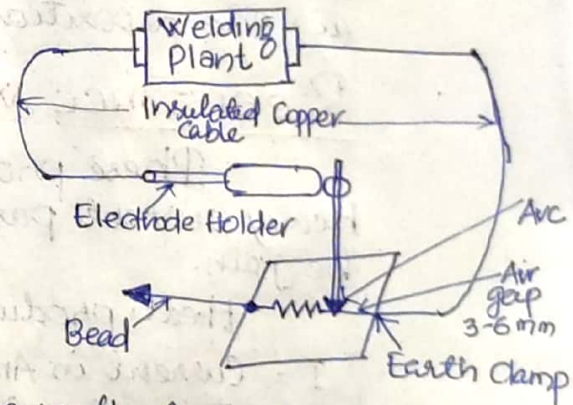 Welding
Plant
Insulated Copper
Cable
Electrode Holder
Arc
Air
gap
3-6mm
Bead
Earth Clamp